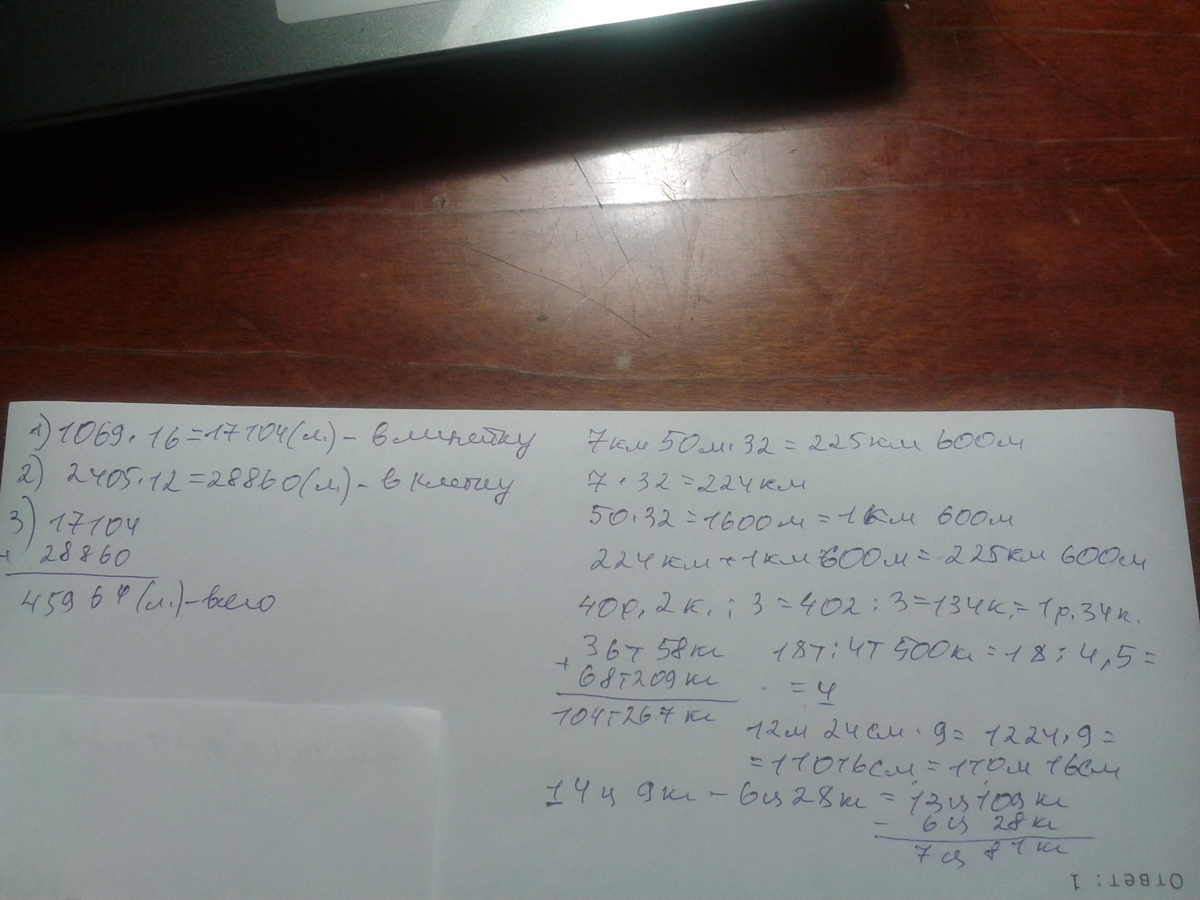 1) 1069·16=17104(л.) – в линейку
2) 2405·12=28860(л.) – в клетку
3) 17104
+ 28860
45964 (л.) – всего
7км 50м·32 = 225км 600м
7·32=224км
50·32=1600м=1км 600м
224км+1км 600м= 225км 600м
40р. 2к. : 3 =402 : 3=134к.=1р.34к.
36т 58кг
+ 68т209кг
104т267кг
18т:4т 500кг=18:4,5=
=4
12м 24см·9= 1224·9=
=11016см=110м 16см
14ц 9кг – 6ц28кг = 13ц109кг
– 6ц 28кг
7ц 81кг
Ответ: 1